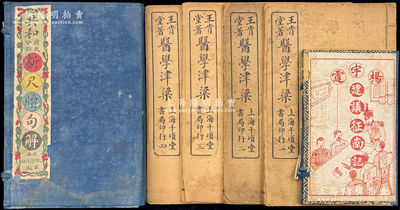 共和
新尺牘句解
王肯堂著
醫學津梁
上海千頃堂書局印行 四
王肯堂著
醫學津梁
上海千頃堂書局印行 三
王肯堂著
醫學津梁
上海千頃堂書局印行 二
王肯堂著
醫學津梁
上海千頃堂書局印行 一
楊宇霆
建議征南記